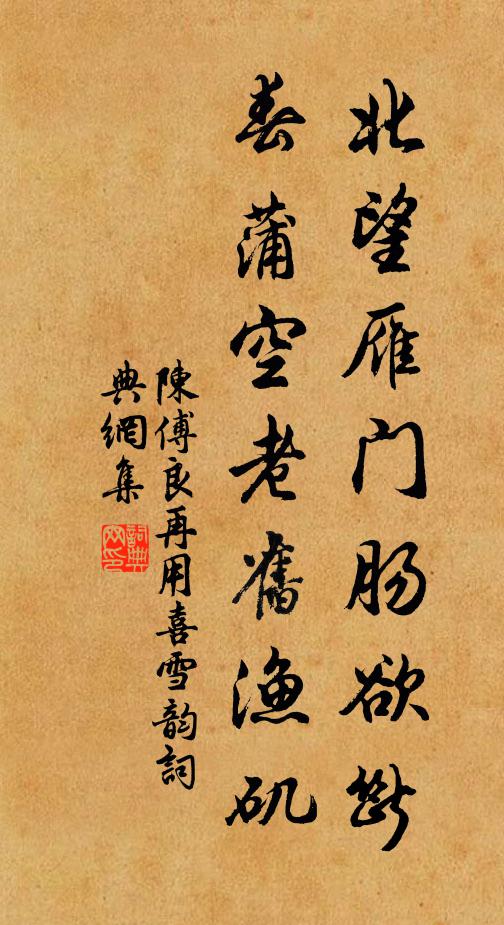 北望雁门肠欲断
春蒲空老舊漁矶
陳傅良再用喜雪韵詞
典網集
詞典网印